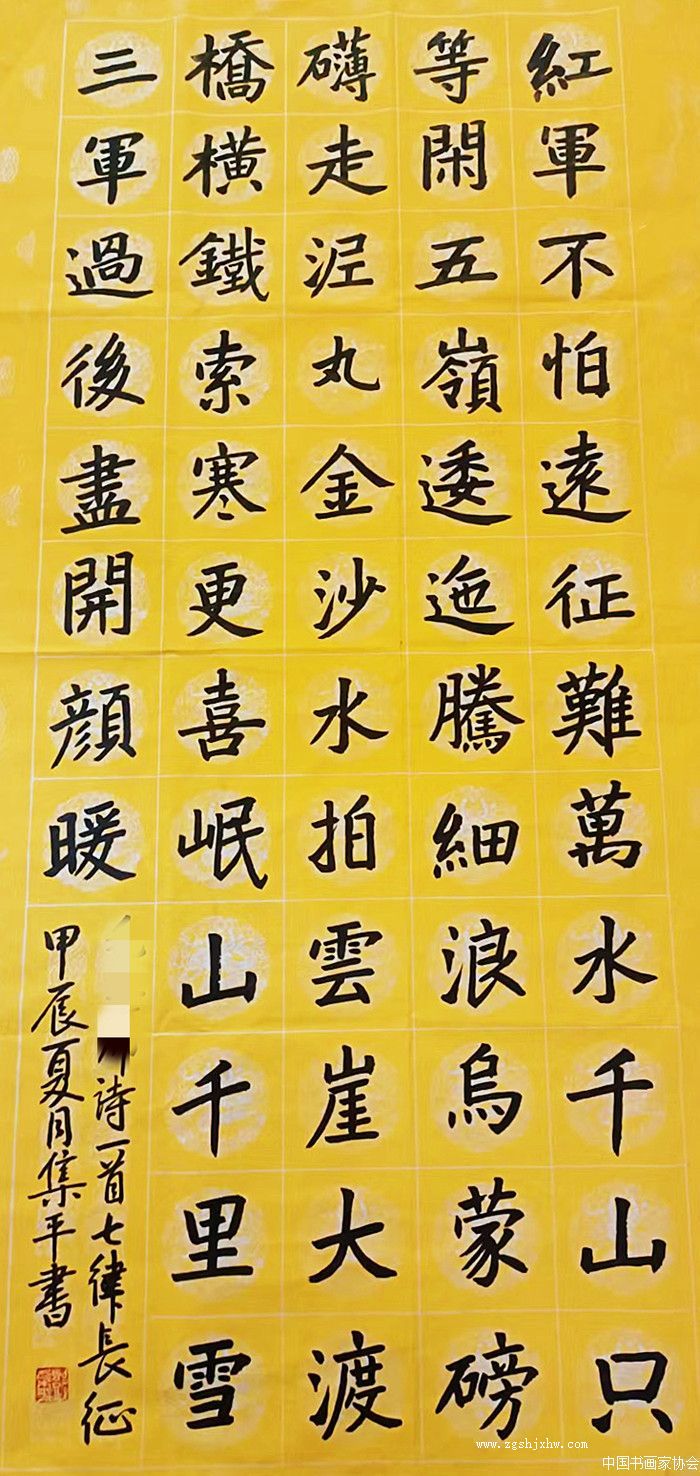 紅軍不怕遠征難萬水千山只
等閑五嶺逶迤騰細浪烏蒙磅
礴走泥丸金沙水拍雲崖大渡
橋橫鐵索寒更喜岷山千里雪
三軍過後盡開顏暖
詩一首七律長征
甲辰夏月集平書
www.zgshjxhw.com
中国书画家协会